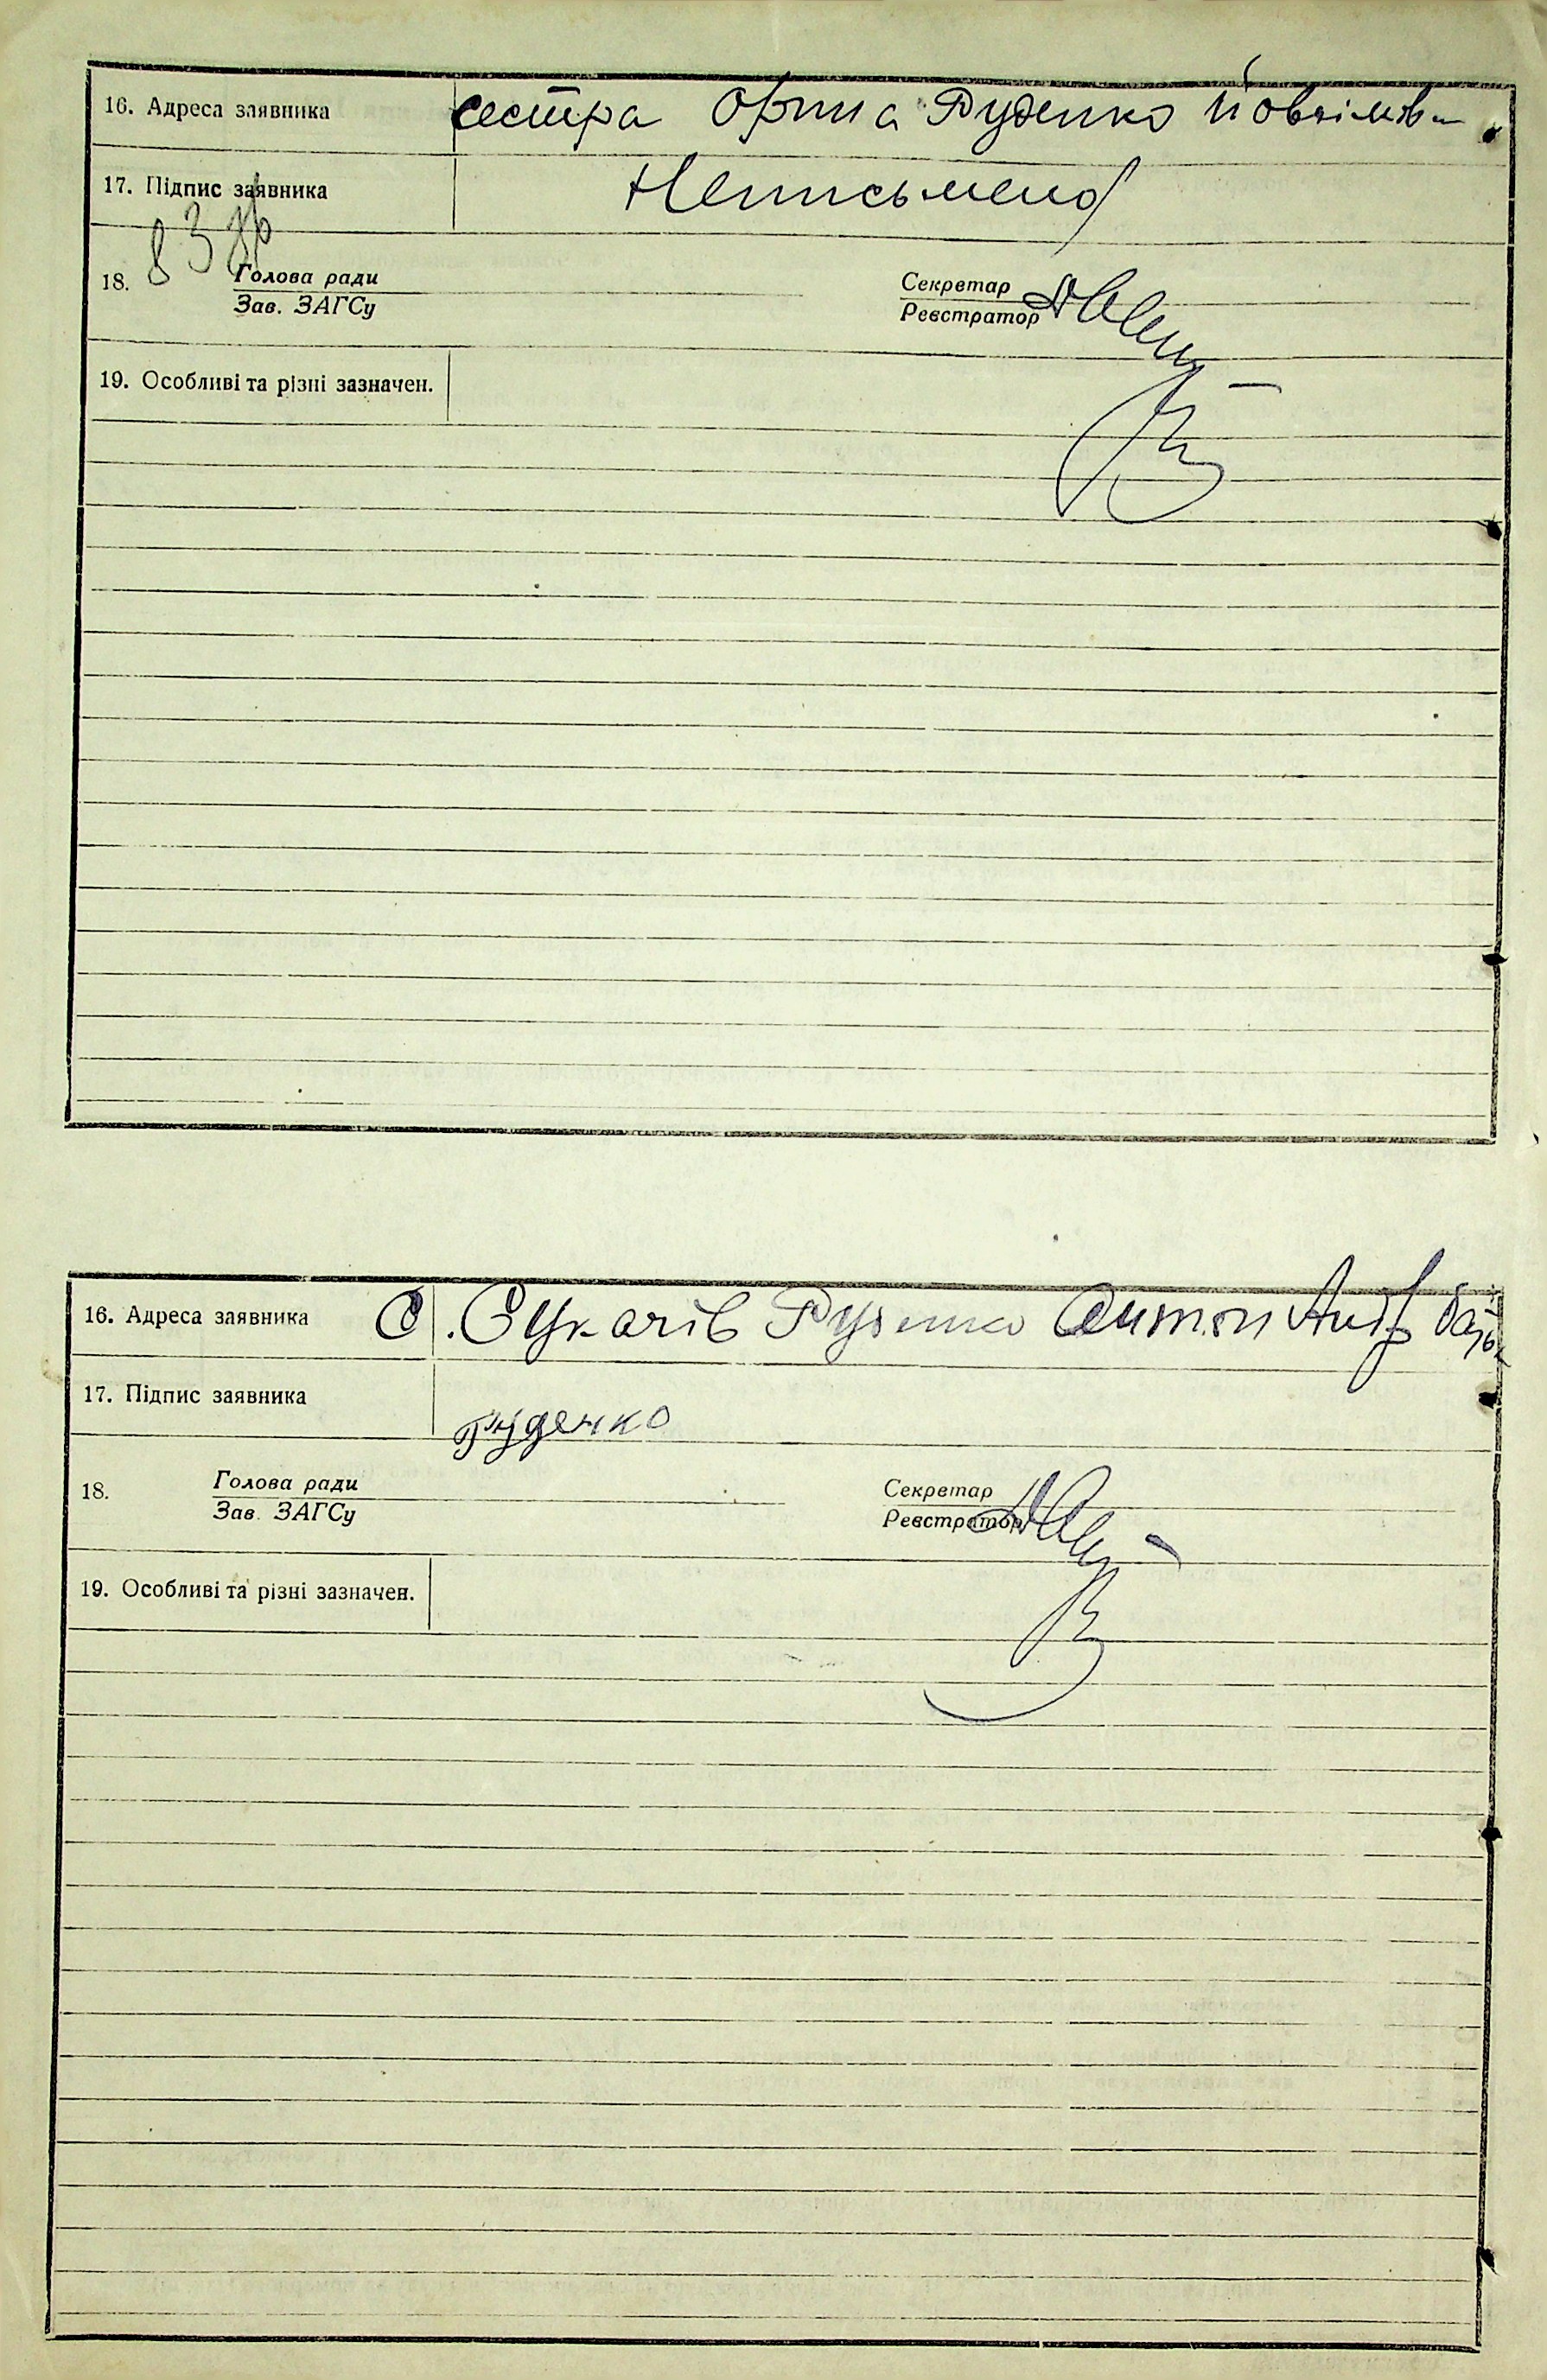 16. Адреса заявника сестра Орина Руденко Йовхімів
17. Підпис заявника Неписьмена
18. Голова ради Секретар
Зав. ЗАГСу Реєстратор
19. Особливі та різні зазначен.
16. Адреса заявника С. Сукачів Руденко Антон Анд батьк
17. Підпис заявника Руденко
18. Голова ради Секретар
Зав. ЗАГСу Реєстратор
19. Особливі та різні зазначен.